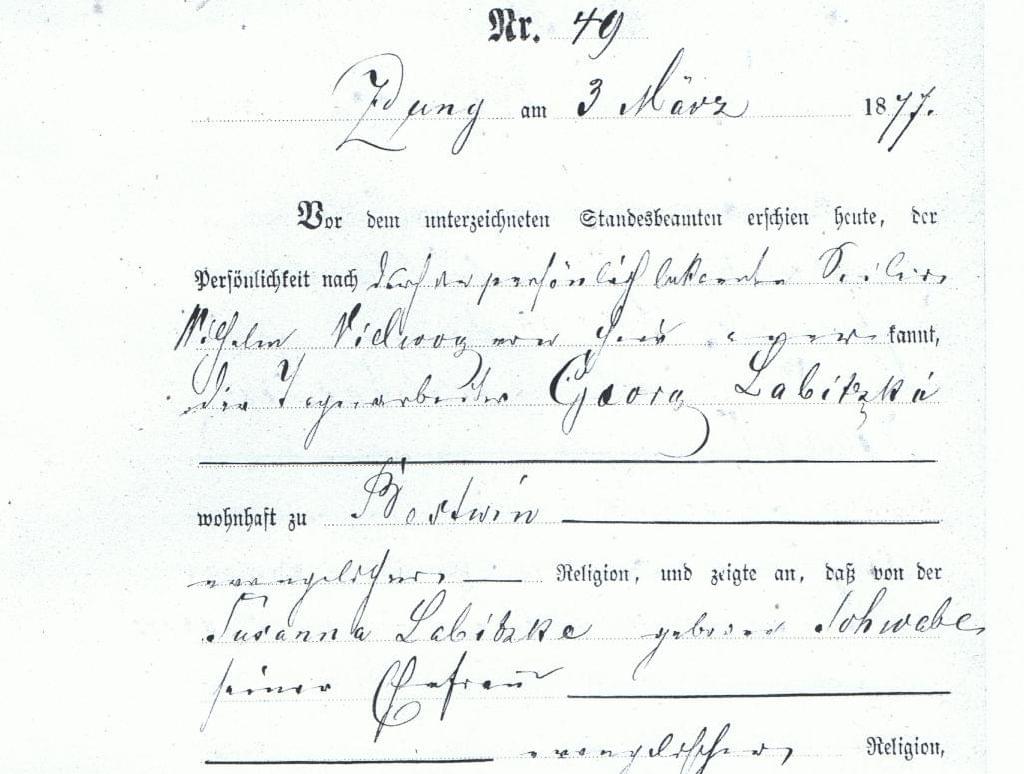 Nr. 49
Zduny am 3 März 1877.
Vor dem unterzeichneten Standesbeamten erschien heute, der
Persönlichkeit nach durch den persönlich bekannten
Wilhelm von hier kannt,
der Tagearbeiter Georg Labitzke
wohnhaft zu
evangelischer Religion, und zeigte an, daß von der
Susanna Labitzke geborene Schwabe
seiner Ehefrau
evangelischer Religion,